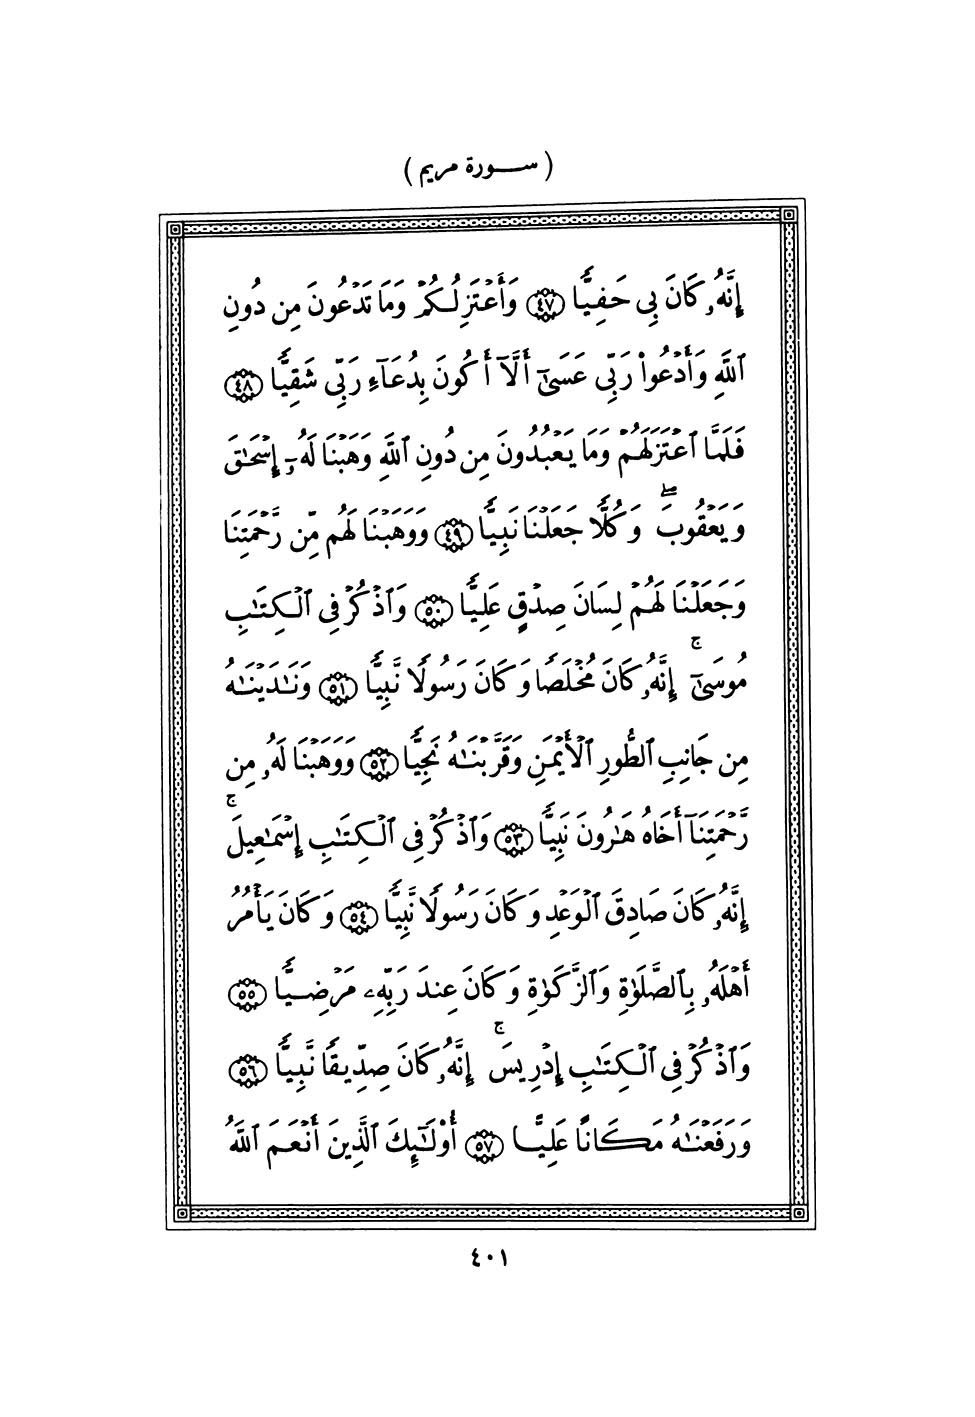 ( سورة مريم )
إِنَّهُۥ كَانَ بِى حَفِيًّا ﴿٤٧﴾ وَأَعْتَزِلُكُمْ وَمَا تَدْعُونَ مِن دُونِ
ٱللَّهِ وَأَدْعُوا۟ رَبِّى عَسَىٰٓ أَلَّآ أَكُونَ بِدُعَآءِ رَبِّى شَقِيًّا ﴿٤٨﴾
فَلَمَّا ٱعْتَزَلَهُمْ وَمَا يَعْبُدُونَ مِن دُونِ ٱللَّهِ وَهَبْنَا لَهُۥٓ إِسْحَـٰقَ
وَيَعْقُوبَ ۖ وَكُلًّا جَعَلْنَا نَبِيًّا ﴿٤٩﴾ وَوَهَبْنَا لَهُم مِّن رَّحْمَتِنَا
وَجَعَلْنَا لَهُمْ لِسَانَ صِدْقٍ عَلِيًّا ﴿٥٠﴾ وَٱذْكُرْ فِى ٱلْكِتَـٰبِ
مُوسَىٰٓ ۚ إِنَّهُۥ كَانَ مُخْلَصًا وَكَانَ رَسُولًا نَّبِيًّا ﴿٥١﴾ وَنَـٰدَيْنَـٰهُ
مِن جَانِبِ ٱلطُّورِ ٱلْأَيْمَنِ وَقَرَّبْنَـٰهُ نَجِيًّا ﴿٥٢﴾ وَوَهَبْنَا لَهُۥ مِن
رَّحْمَتِنَآ أَخَاهُ هَـٰرُونَ نَبِيًّا ﴿٥٣﴾ وَٱذْكُرْ فِى ٱلْكِتَـٰبِ إِسْمَـٰعِيلَ ۚ
إِنَّهُۥ كَانَ صَادِقَ ٱلْوَعْدِ وَكَانَ رَسُولًا نَّبِيًّا ﴿٥٤﴾ وَكَانَ يَأْمُرُ
أَهْلَهُۥ بِٱلصَّلَوٰةِ وَٱلزَّكَوٰةِ وَكَانَ عِندَ رَبِّهِۦ مَرْضِيًّا ﴿٥٥﴾
وَٱذْكُرْ فِى ٱلْكِتَـٰبِ إِدْرِيسَ ۚ إِنَّهُۥ كَانَ صِدِّيقًا نَّبِيًّا ﴿٥٦﴾
وَرَفَعْنَـٰهُ مَكَانًا عَلِيًّا ﴿٥٧﴾ أُو۟لَـٰٓئِكَ ٱلَّذِينَ أَنْعَمَ ٱللَّهُ
٤٠١